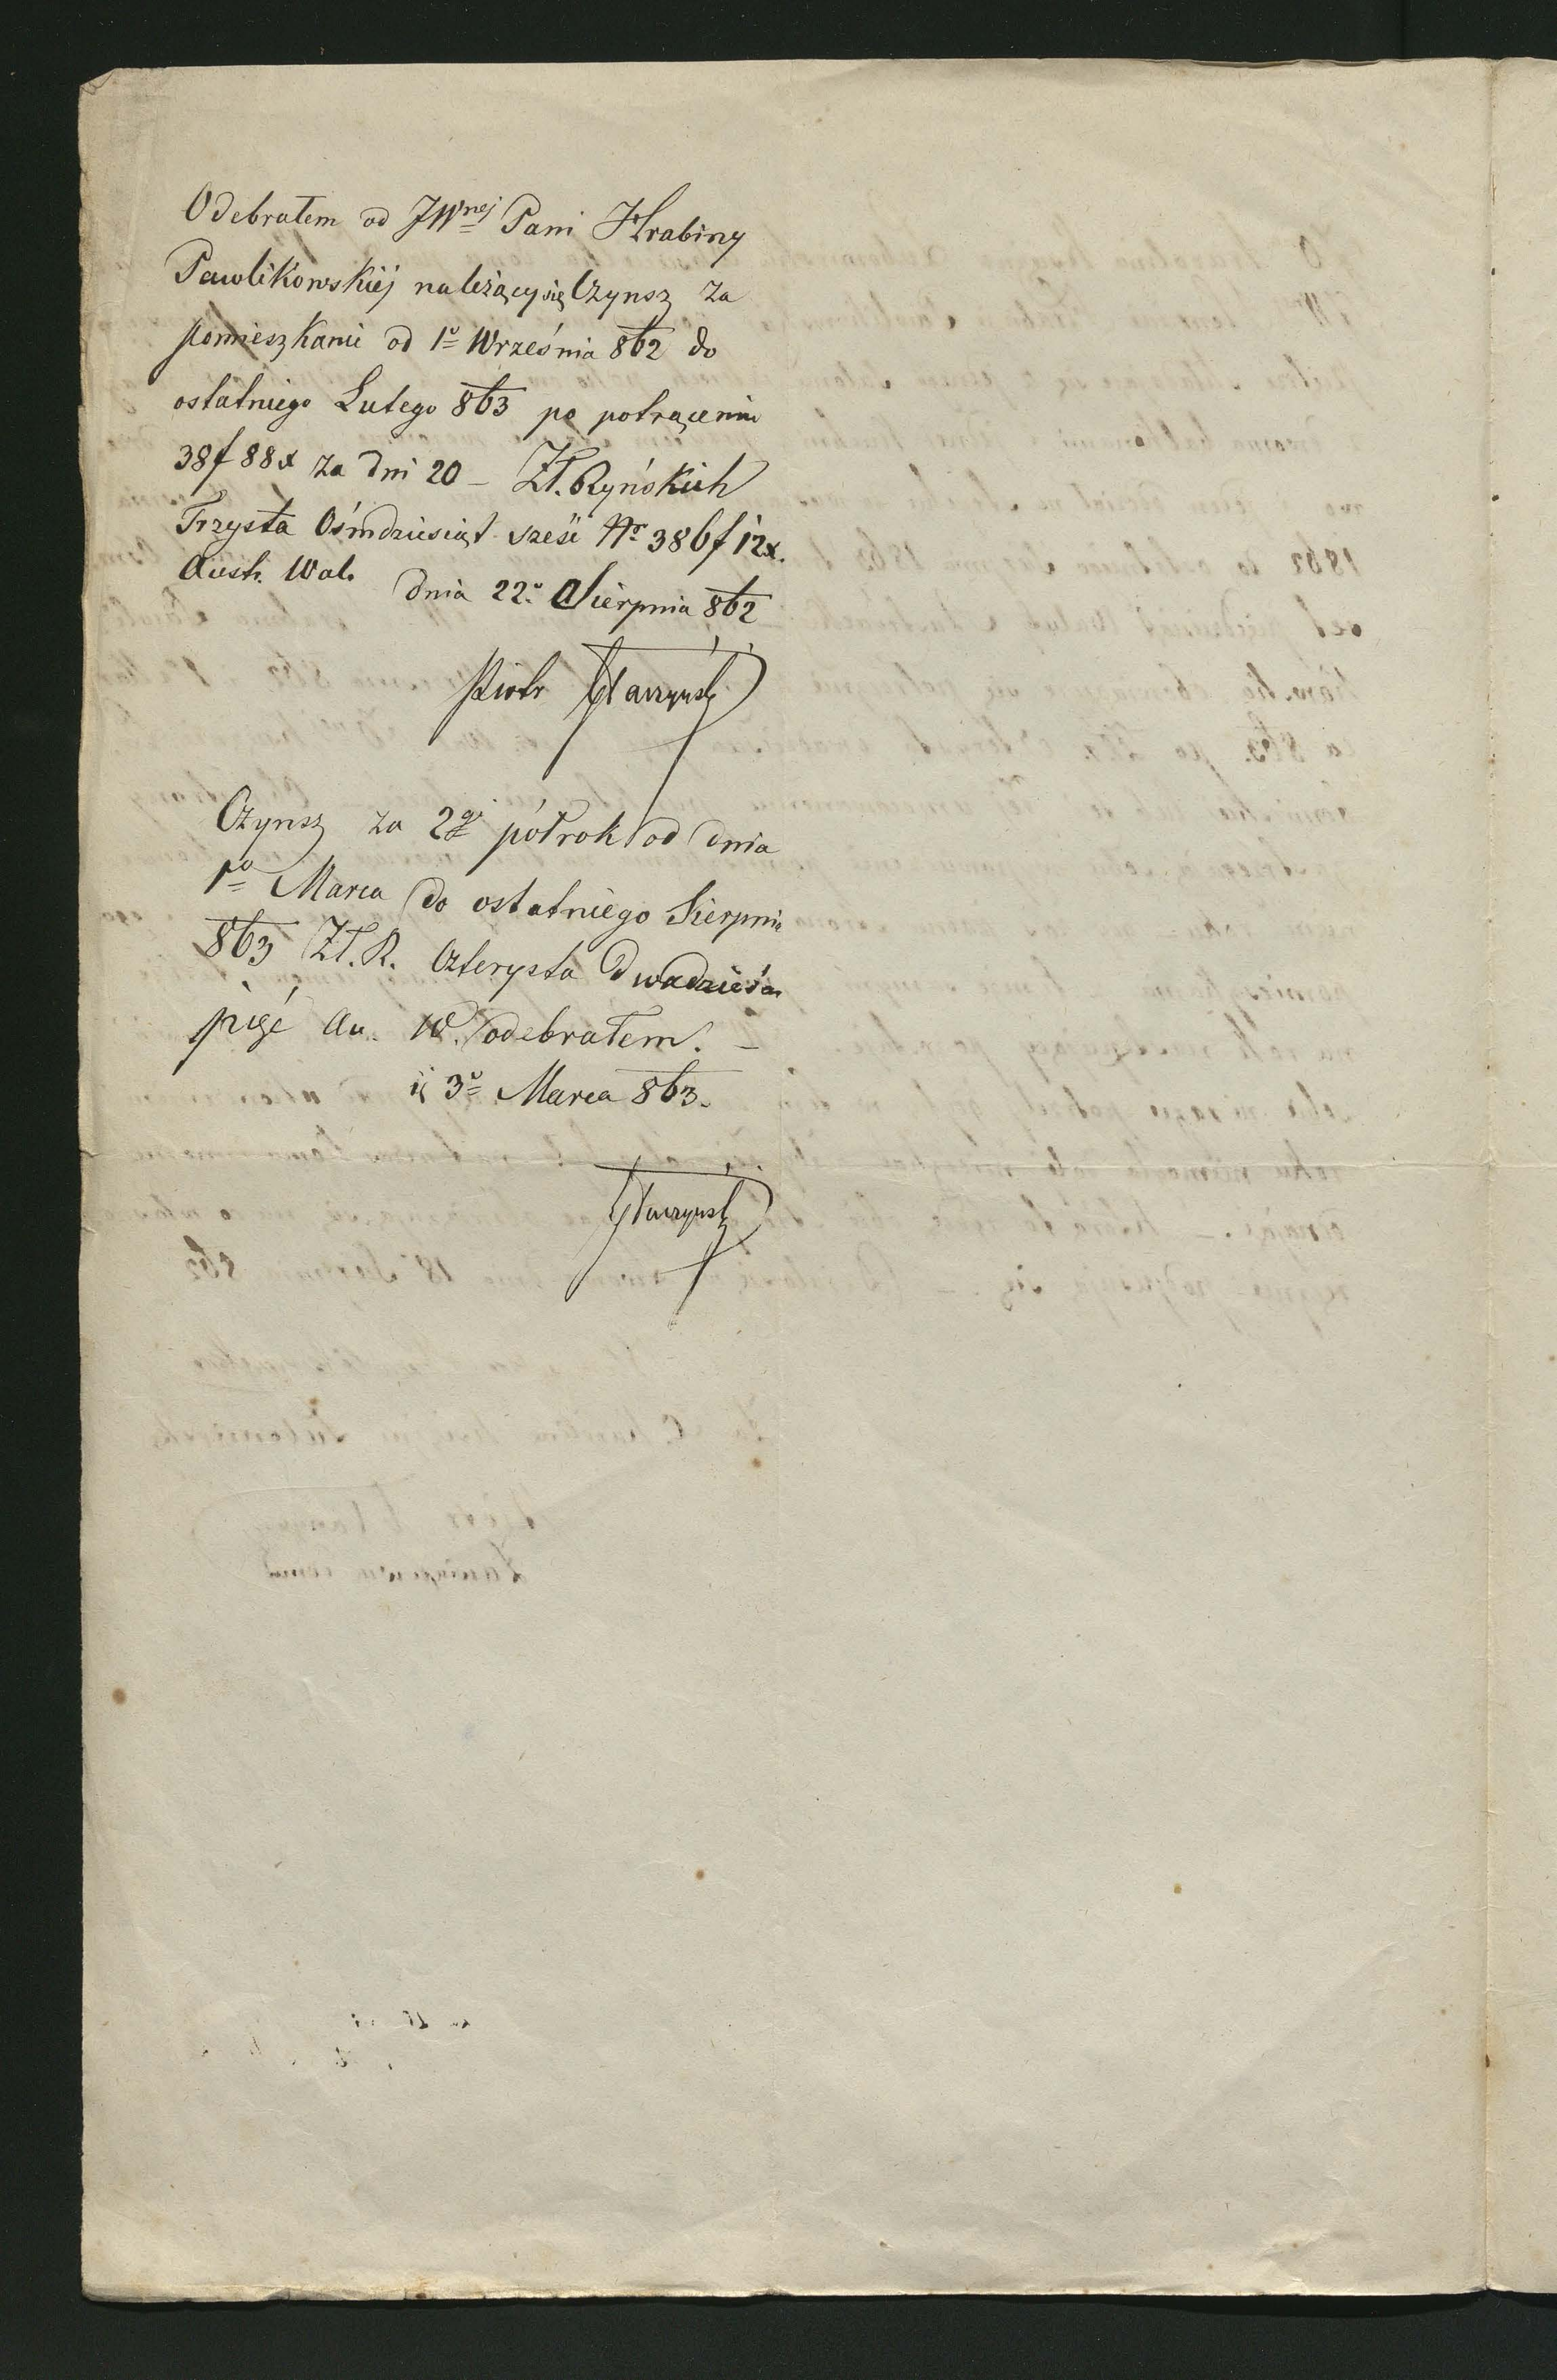 Odebrałem od JWnej Pani Hrabiny
Pawlikowskiéj należący się Czynsz za
pomieszkanie od 1o Września 862 do
ostatniego Lutego 863 po potrąceniu
38f 88x za dni 20 – Zł. Ryńskich
Trzysta Ośmdziesiąt sześć Nr 386f 12x.
Austr. Wal. dnia 22o Sierpnia 862
Piotr
Czynsz za 2gi półrok od dnia
1o Marca do ostatniego Sierpnia
863 Zł. R. Czterysta Dwadzieścia
pięć Au. W. odebrałem. –
3o Marca 863.